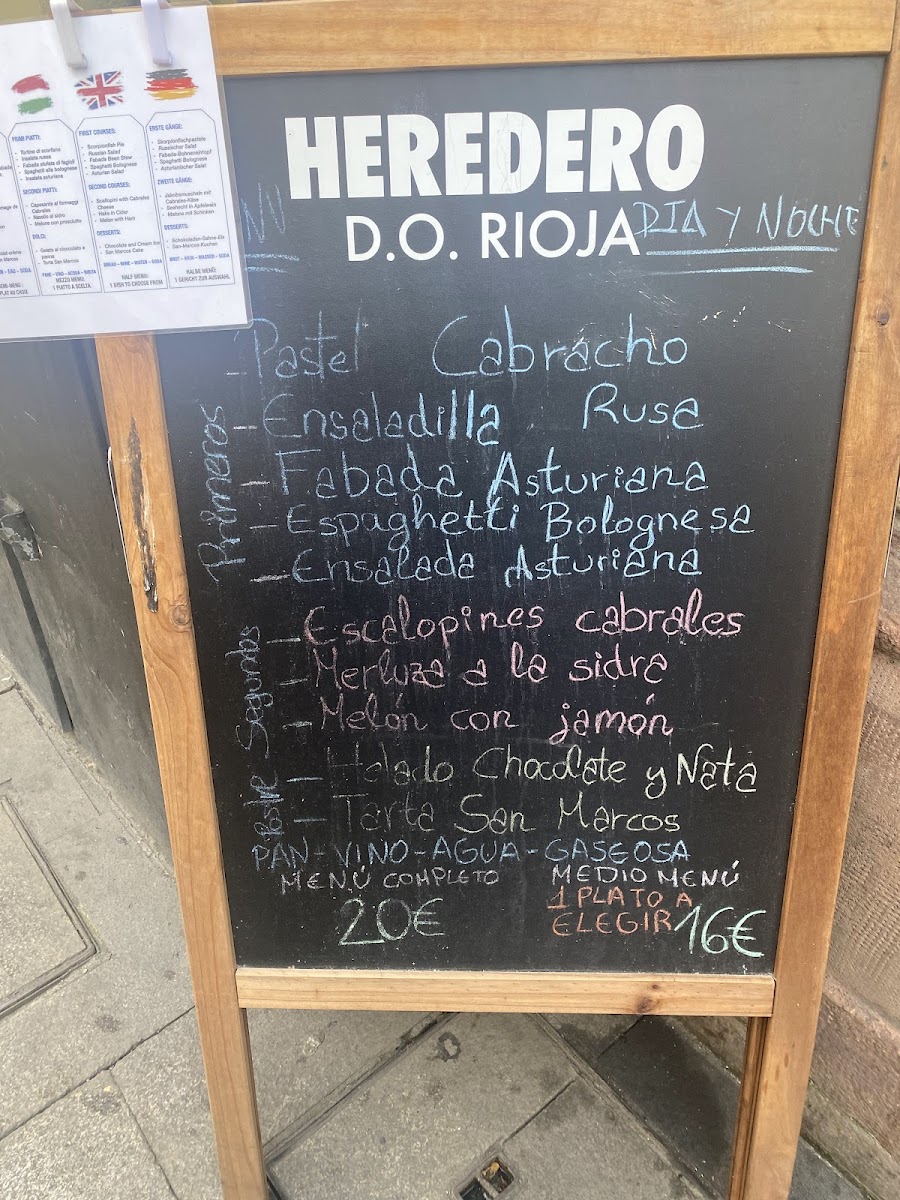 HEREDERO
D.O. RIOJA
DIA Y NOCHE
Primeros
- Pastel Cabracho
- Ensaladilla Rusa
- Fabada Asturiana
- Espaghetti Bolognesa
- Ensalada Asturiana
Segundos
- Escalopines cabrales
- Merluza a la sidra
- Melón con jamón
- Helado Chocolate y Nata
- Tarta San Marcos
PAN-VINO-AGUA-GASEOSA
MENÚ COMPLETO
20€
MEDIO MENÚ
1 PLATO A
ELEGIR 16€
PRIMI PIATTI:
- Insalata russa
- Spaghetti alla bolognese
- Insalata asturiana
SECONDI PIATTI:
DOLCI:
PANE - VINO - ACQUA - BIBITA
MEZZO MENÙ:
1 PIATTO A SCELTA
FIRST COURSES:
- Scorpionfish Pie
- Russian Salad
- Fabada Bean Stew
- Spaghetti Bolognese
- Asturian Salad
SECOND COURSES:
- Scallopini with Cabrales
Cheese
- Hake in Cider
- Melon with Ham
DESSERTS:
- Chocolate and Cream Ice
- San Marcos Cake
BREAD - WINE - WATER - SODA
HALF MENU:
1 DISH TO CHOOSE FROM
ERSTE GÄNGE:
- Skorpionfischpastete
- Russischer Salat
- Fabada-Bohneneintopf
- Spaghetti Bolognese
- Asturianischer Salat
ZWEITE GÄNGE:
- Jakobsmuscheln mit
Cabrales-Käse
- Seehecht in Apfelwein
- Melone mit Schinken
DESSERTS:
- Schokoladen-Sahne-Eis
- San-Marcos-Kuchen
BROT - WEIN - WASSER - SODA
HALBE MENÜ:
1 GERICHT ZUR AUSWAHL